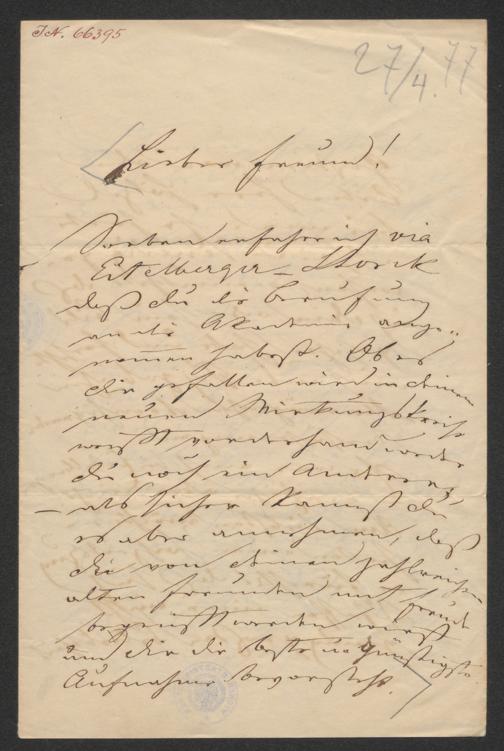 J.N. 66395
27/4. 77
Lieber Freund!
Soeben erfahre ich via
Eitelberger – Storck
daß du die Berufung
an die Akademie ange„
nommen habest. Ob es
dir gefallen wird in deinem
neuen Wirkungskreise
weißt vorderhand weder
du noch ein Anderer,
– als sicher kannst du
es aber annehmen, daß
du von deinen zahlreichen
alten Freunden mit Freude
begrüßt werden wirst
und dir die beste u günstigste
Aufnahme bevorsteht.